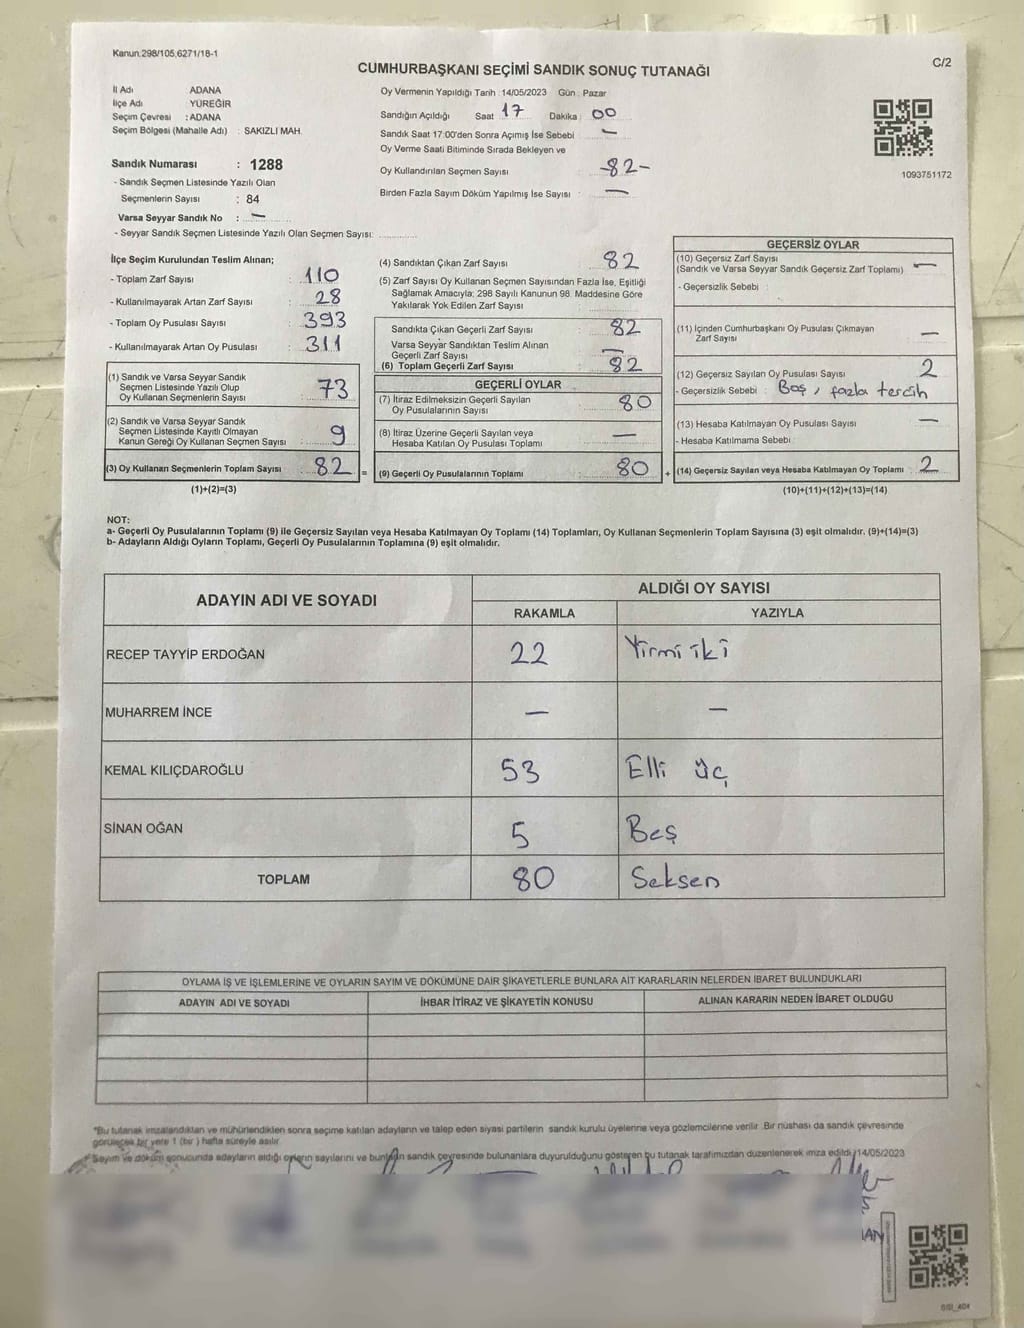 Kanun.298/105,6271/18-1
C/2
CUMHURBAŞKANI SEÇİMİ SANDIK SONUÇ TUTANAĞI
İl Adı ADANA
İlçe Adı YÜREĞİR
Seçim Çevresi : ADANA
Seçim Bölgesi (Mahalle Adı) : SAKIZLI MAH.
Sandık Numarası : 1288
- Sandık Seçmen Listesinde Yazılı Olan
Seçmenlerin Sayısı : 84
Varsa Seyyar Sandık No : —
- Seyyar Sandık Seçmen Listesinde Yazılı Olan Seçmen Sayısı:
Oy Vermenin Yapıldığı Tarih : 14/05/2023 Gün : Pazar
Sandığın Açıldığı Saat 17 Dakika : 00
Sandık Saat 17:00'den Sonra Açımış İse Sebebi : —
Oy Verme Saati Bitiminde Sırada Bekleyen ve
Oy Kullandırılan Seçmen Sayısı : -82-
Birden Fazla Sayım Döküm Yapılmış İse Sayısı : —
1093751172
İlçe Seçim Kurulundan Teslim Alınan;
- Toplam Zarf Sayısı : 110
- Kullanılmayarak Artan Zarf Sayısı : 28
- Toplam Oy Pusulası Sayısı : 393
- Kullanılmayarak Artan Oy Pusulası : 311
(1) Sandık ve Varsa Seyyar Sandık
Seçmen Listesinde Yazılı Olup
Oy Kullanan Seçmenlerin Sayısı 73
(2) Sandık ve Varsa Seyyar Sandık
Seçmen Listesinde Kayıtlı Olmayan
Kanun Gereği Oy Kullanan Seçmen Sayısı : 9
(3) Oy Kullanan Seçmenlerin Toplam Sayısı : 82 =
(1)+(2)=(3)
(4) Sandıktan Çıkan Zarf Sayısı : 82
(5) Zarf Sayısı Oy Kullanan Seçmen Sayısından Fazla İse, Eşitliği
Sağlamak Amacıyla; 298 Sayılı Kanunun 98. Maddesine Göre
Yakılarak Yok Edilen Zarf Sayısı :
Sandıkta Çıkan Geçerli Zarf Sayısı : 82
Varsa Seyyar Sandıktan Teslim Alınan
Geçerli Zarf Sayısı : —
(6) Toplam Geçerli Zarf Sayısı : 82
GEÇERLİ OYLAR
(7) İtiraz Edilmeksizin Geçerli Sayılan
Oy Pusulalarının Sayısı : 80
(8) İtiraz Üzerine Geçerli Sayılan veya
Hesaba Katılan Oy Pusulası Toplamı : —
(9) Geçerli Oy Pusulalarının Toplamı : 80 +
GEÇERSİZ OYLAR
(10) Geçersiz Zarf Sayısı
(Sandık ve Varsa Seyyar Sandık Geçersiz Zarf Toplamı) : —
- Geçersizlik Sebebi :
(11) İçinden Cumhurbaşkanı Oy Pusulası Çıkmayan
Zarf Sayısı : —
(12) Geçersiz Sayılan Oy Pusulası Sayısı : 2
- Geçersizlik Sebebi : Boş, fazla tercih
(13) Hesaba Katılmayan Oy Pusulası Sayısı : —
- Hesaba Katılmama Sebebi :
(14) Geçersiz Sayılan veya Hesaba Katılmayan Oy Toplamı : 2
(10)+(11)+(12)+(13)=(14)
NOT:
a- Geçerli Oy Pusulalarının Toplamı (9) ile Geçersiz Sayılan veya Hesaba Katılmayan Oy Toplamı (14) Toplamları, Oy Kullanan Seçmenlerin Toplam Sayısına (3) eşit olmalıdır. (9)+(14)=(3)
b- Adayların Aldığı Oyların Toplamı, Geçerli Oy Pusulalarının Toplamına (9) eşit olmalıdır.
ADAYIN ADI VE SOYADI ALDIĞI OY SAYISI
RAKAMLA YAZIYLA
RECEP TAYYİP ERDOĞAN 22 Yirmi iki
MUHARREM İNCE — —
KEMAL KILIÇDAROĞLU 53 Elli üç
SİNAN OĞAN 5 Beş
TOPLAM 80 Seksen
OYLAMA İŞ VE İŞLEMLERİNE VE OYLARIN SAYIM VE DÖKÜMÜNE DAİR ŞİKAYETLERLE BUNLARA AİT KARARLARIN NELERDEN İBARET BULUNDUKLARI
ADAYIN ADI VE SOYADI İHBAR İTİRAZ VE ŞİKAYETİN KONUSU ALINAN KARARIN NEDEN İBARET OLDUĞU
*Bu tutanak imzalandıktan ve mühürlendikten sonra seçime katılan adayların ve talep eden siyasi partilerin sandık kurulu üyelerine veya gözlemcilerine verilir. Bir nüshası da sandık çevresinde
görülecek bir yere 1 (bir ) hafta süreyle asılır.
* Sayım ve döküm sonucunda adayların aldığı oyların sayılarını ve bunların sandık çevresinde bulunanlara duyurulduğunu gösteren bu tutanak tarafımızdan düzenlenerek imza edildi. 14/05/2023